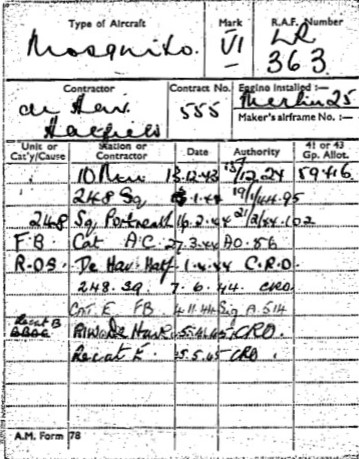 Type of Aircraft Mark R.A.F. Number
Mosquito. VI LR
363
Contractor Contract No. Engine installed :—
de Hav. 555 Merlin 25
Hatfield Maker's airframe No. :—
Unit or Cat'y/Cause Station or Contractor Date Authority 41 or 43 Gp. Allot.
10 13.12.43 12.24 59416
248 Sq 1.44 19/1/44.95
248 Sq Portreath 16.2.44 21/2/44.102
F.B. Cat A.C. 27.3.44 AO. 86
R.O.S. De Hav. Hatf 1.4.44 C.R.O.
248. Sq. 7.6.44. CRO.
CAT. E FB. 4.11.44 Sig A.514
Recat B De Hav CRO.
Recat E. 5.5.45 CRO.
A.M. Form 78